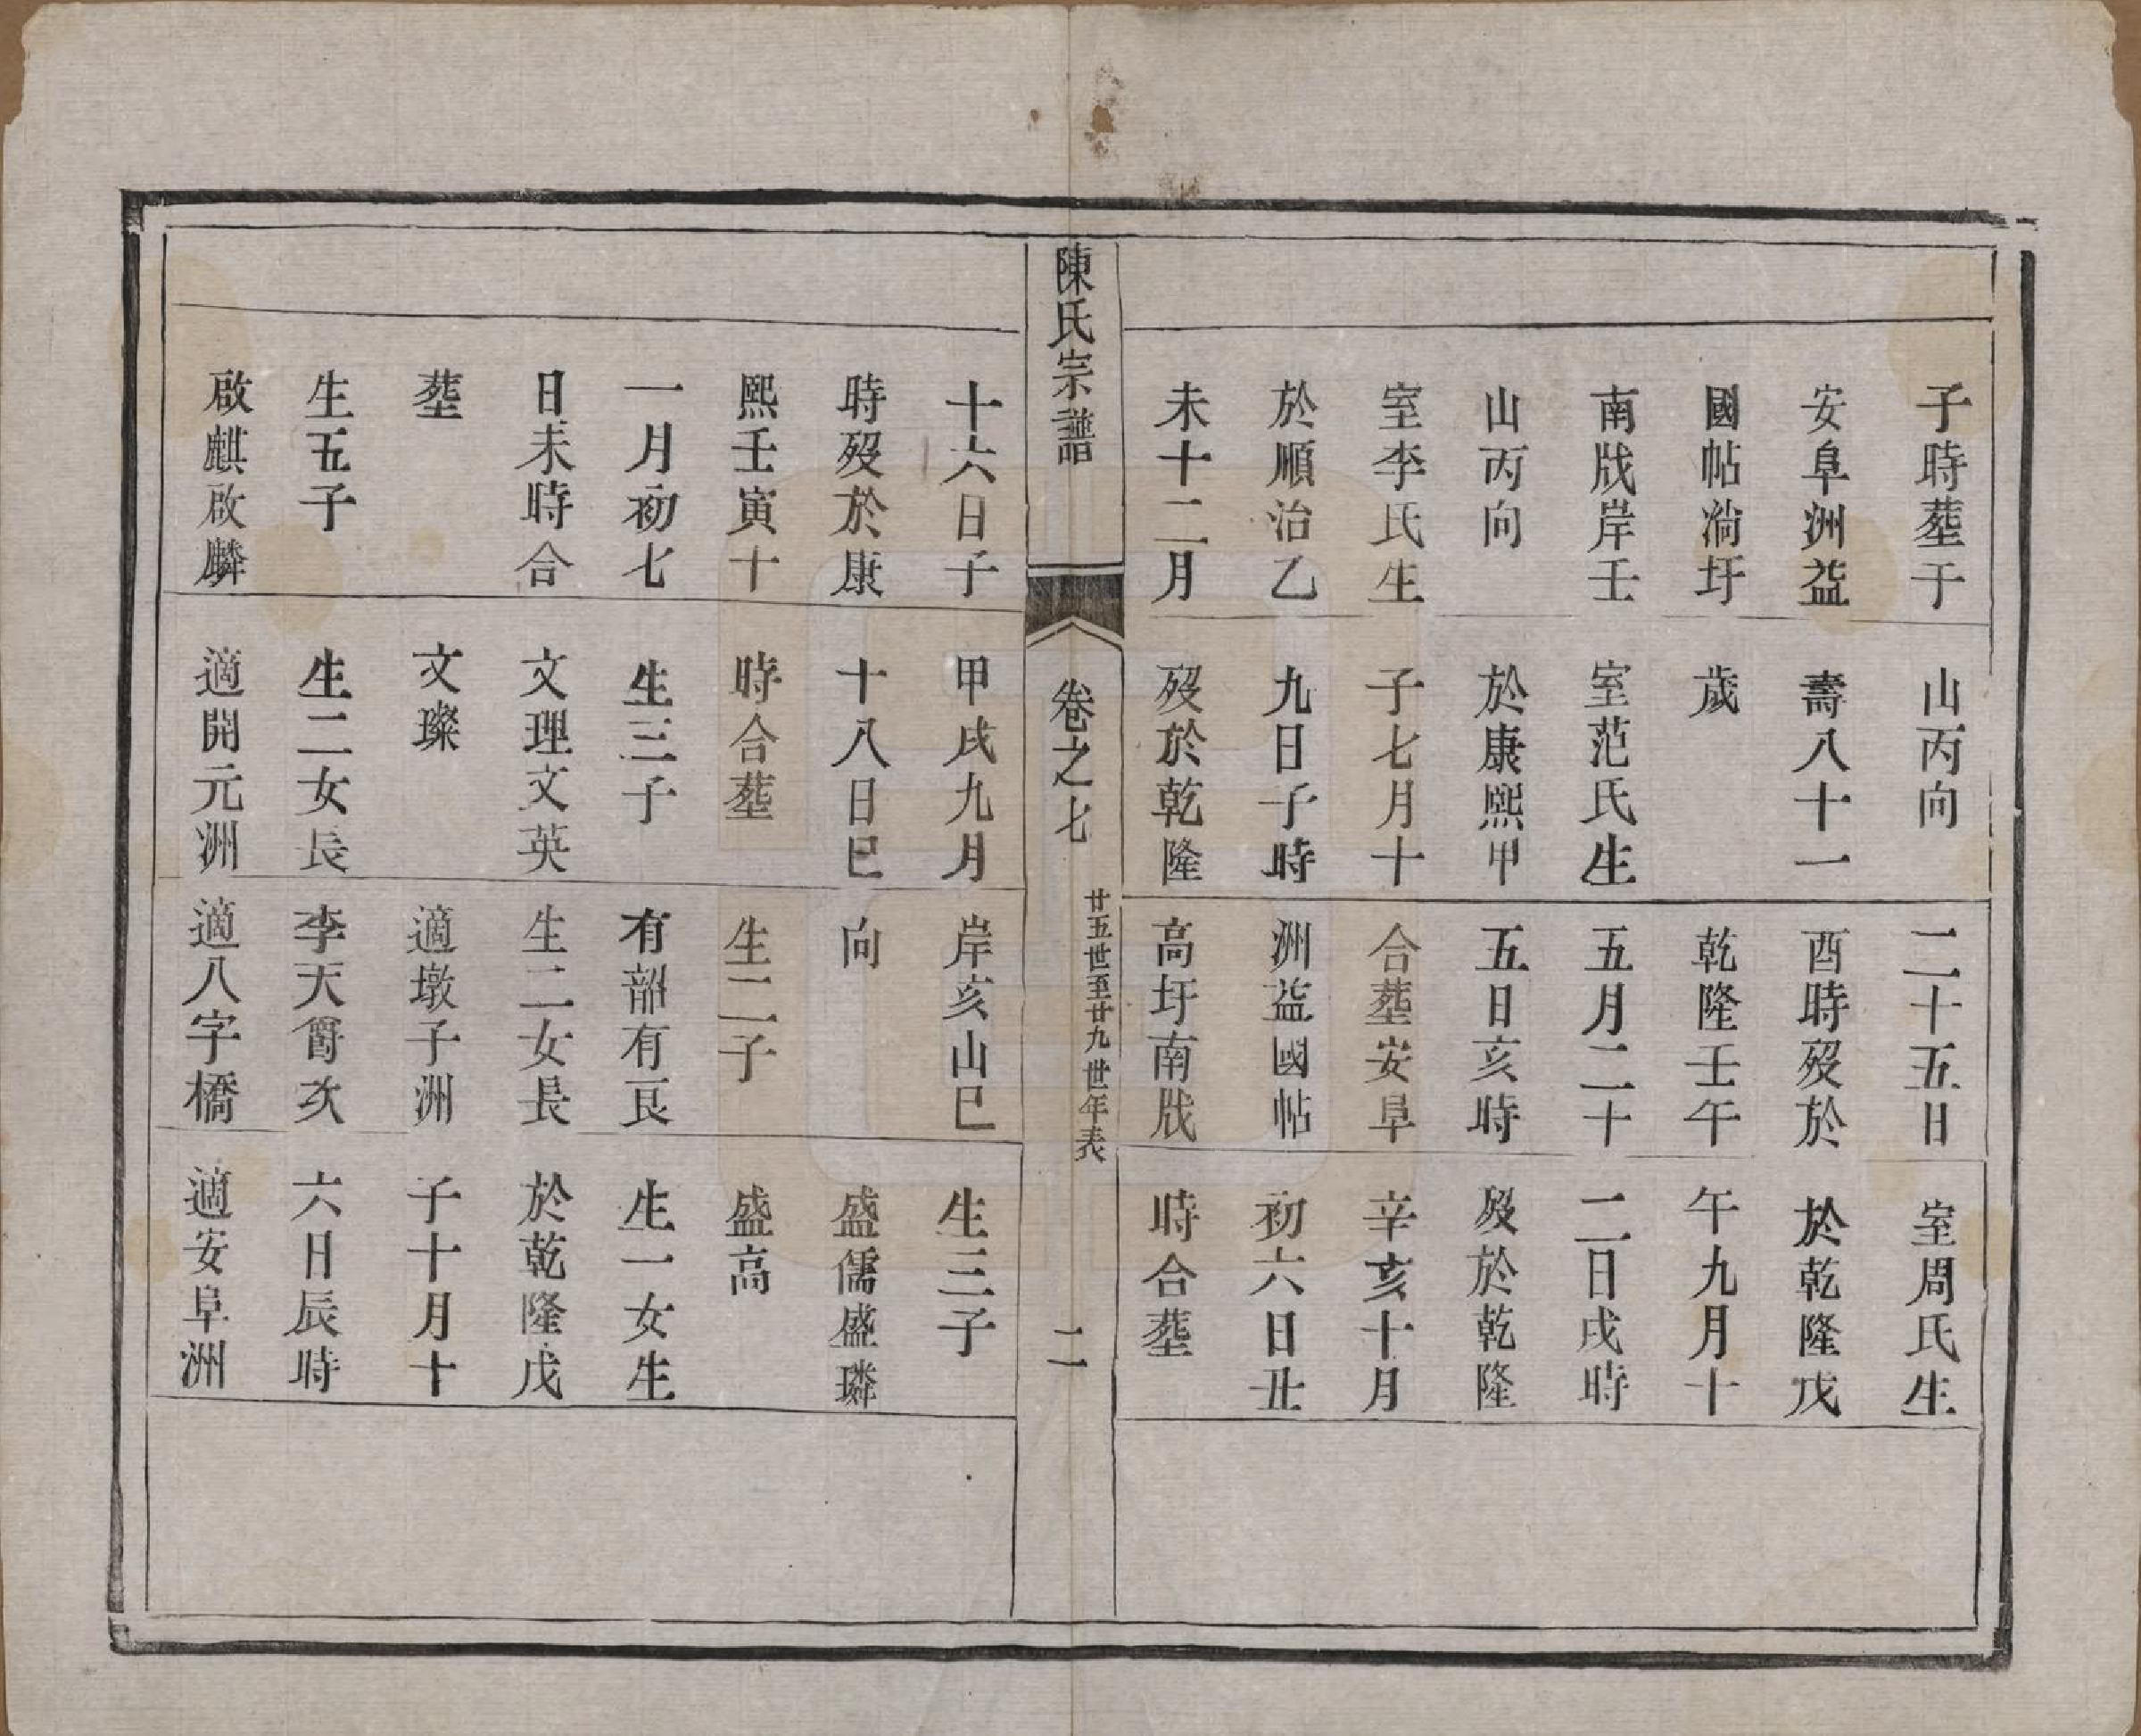 子時塟于
安阜洲益
國帖淌圩
南戕岸壬
山丙向
室李氏生
於順治乙
未十二月
山丙向
壽八十一
歲
室范氏生
於康熙甲
子七月十
九日子時
歿於乾隆
二十五日
酉時歿於
乾隆壬午
五月二十
五日亥時
合塟安阜
洲益國帖
高圩南戕
室周氏生
於乾隆戊
午九月十
二日戌時
歿於乾隆
辛亥十月
初六日丑
時合塟
陳氏宗譜
卷之七
廿五世至廿九世年表
二
十六日子
時歿於康
熙壬寅十
一月初七
日未時合
塟
生五子
啟麒啟麟
甲戌九月
十八日巳
時合塟
生三子
文理文英
文璨
生二女長
適開元洲
岸亥山巳
向
生二子
有韶有良
生二女長
適墩子洲
李天爵次
適八字橋
生三子
盛儒盛璘
盛高
生一女生
於乾隆戊
子十月十
六日辰時
適安阜洲